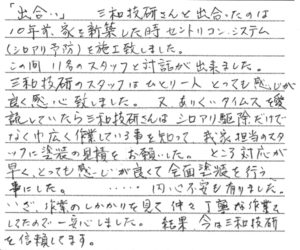 「出合い」 三和技研さんと出合ったのは
10年前、家を新築した時セントリコン・システム
(シロアリ予防)を施工致しました。
この間11名のスタッフと対話が出来ました。
三和技研のスタッフはひとり一人とっても感じが
良く感心致しました。又、ありくいタイムスを愛
読していたら三和技研さんはシロアリ駆除だけで
なく巾広く作業している事を知って、我家担当のスタ
ッフに塗装の見積をお願いした。ところ対応が
早く、とっても感じが良くて全面塗装を行う
事にした。 ・・・・・ 内心不安も有りました。
いざ、作業のしかかりを見て仲々丁寧な作業を
してたので一安心しました。 結果、今は三和技研
を信頼してます。